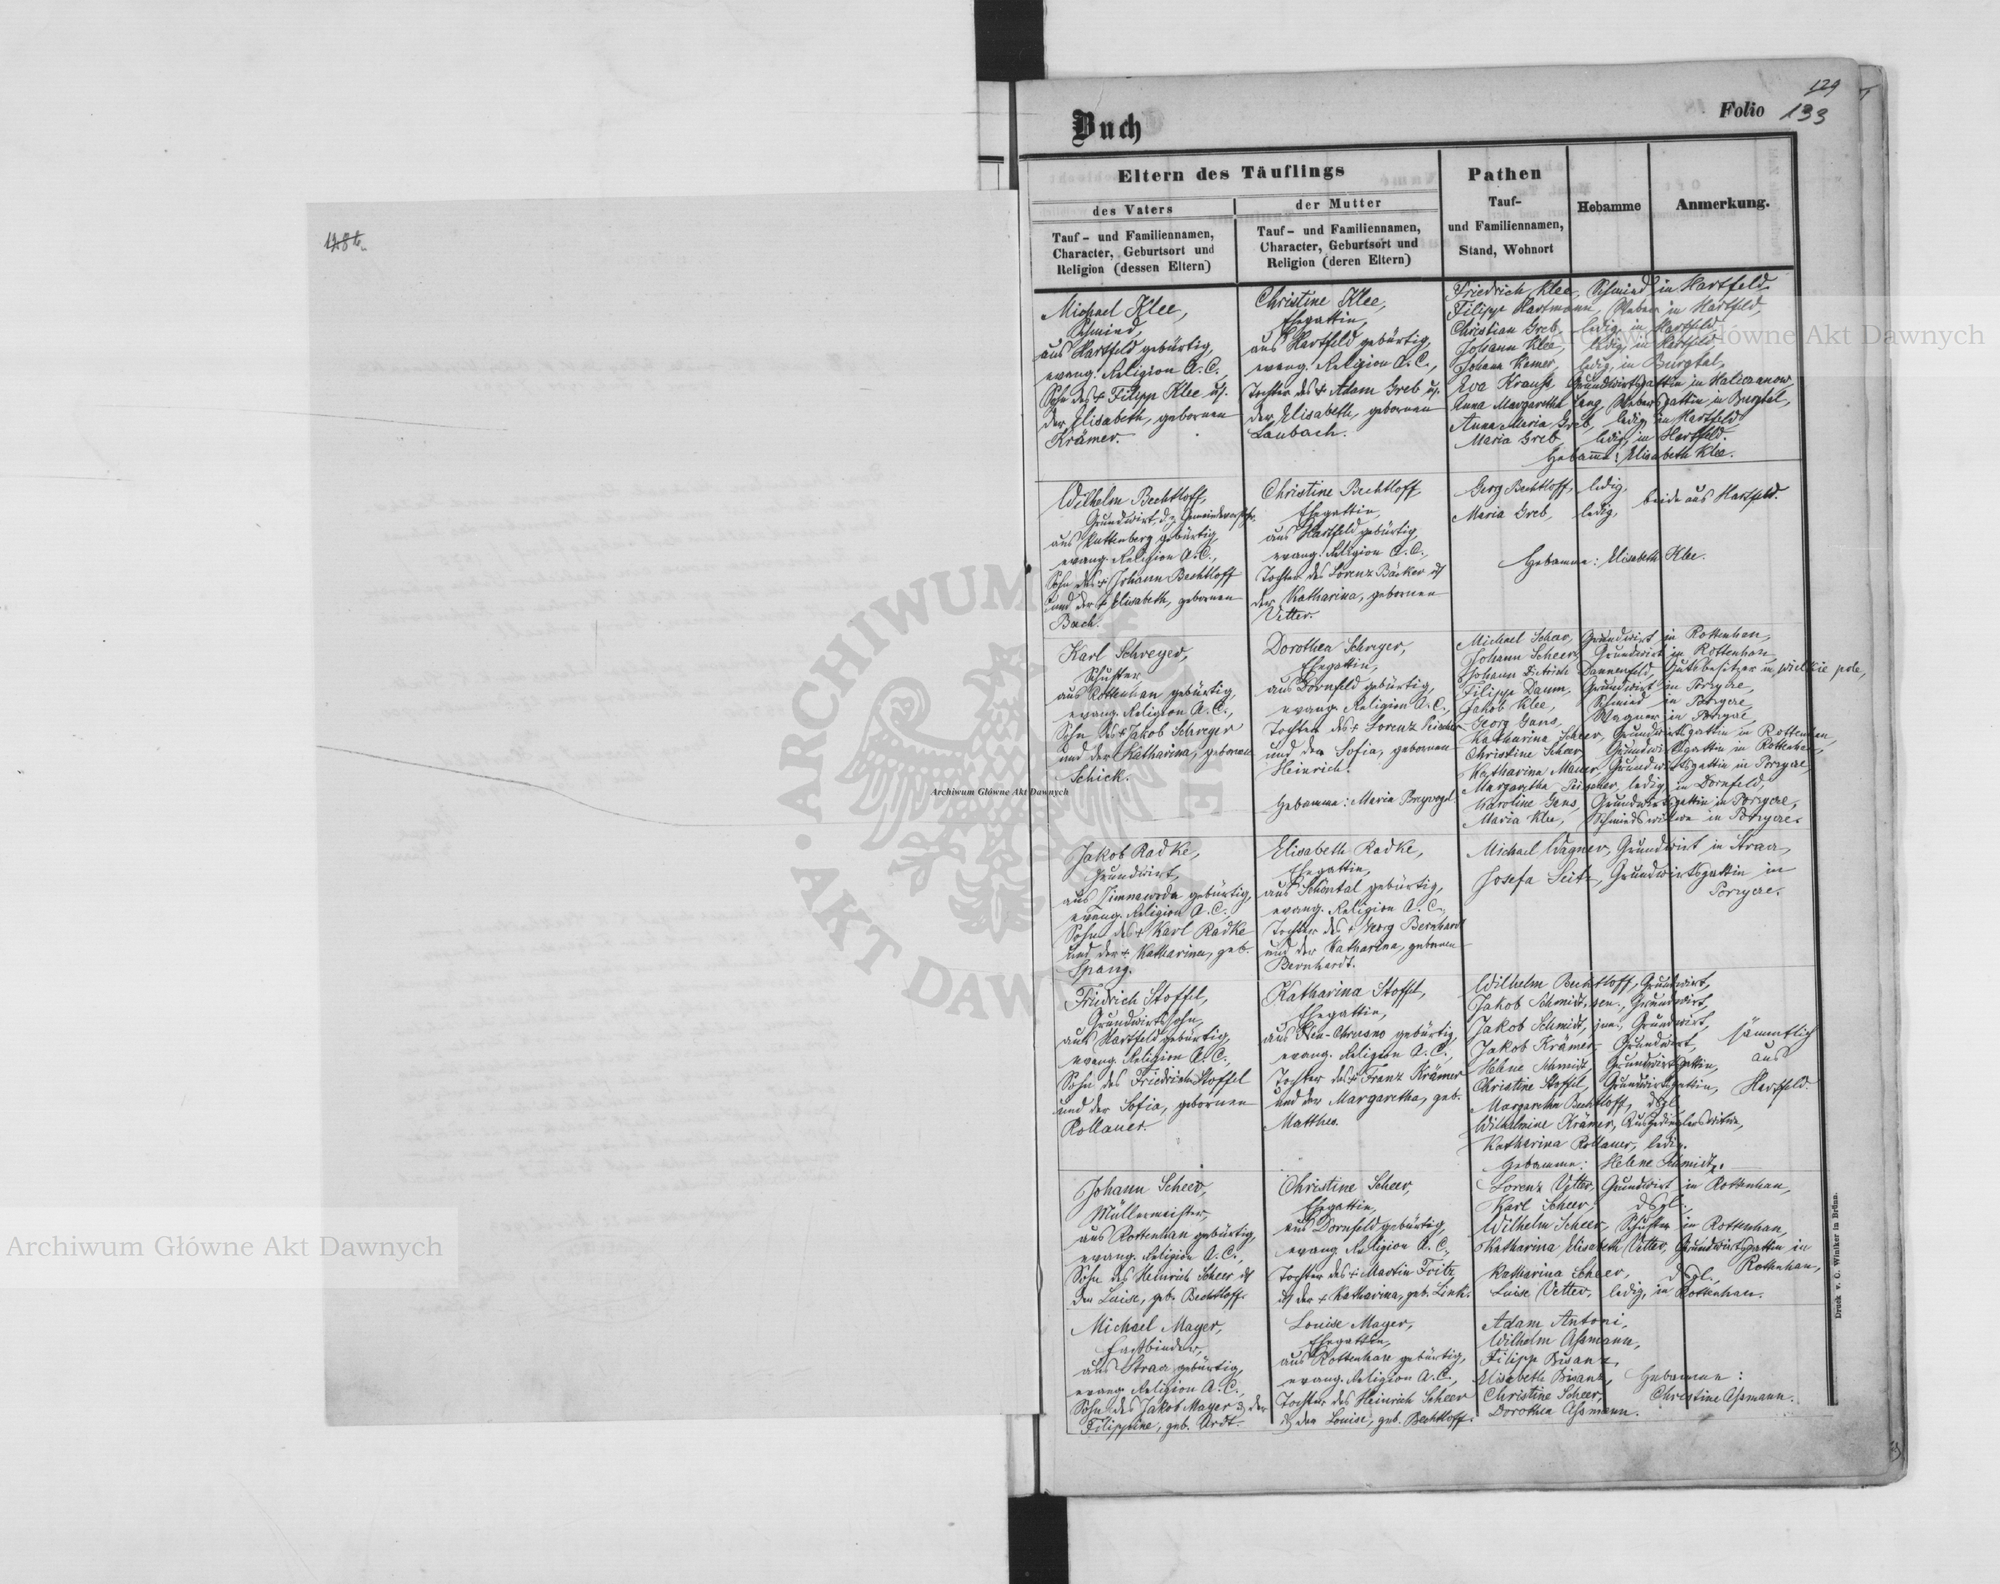 129
Buch
Folio 133
Eltern des Täuflings
Pathen
Hebamme
Anmerkung.
des Vaters
der Mutter
Tauf-
und Familiennamen,
Stand, Wohnort
Tauf- und Familiennamen,
Character, Geburtsort und
Religion (dessen Eltern)
Tauf- und Familiennamen,
Character, Geburtsort und
Religion (deren Eltern)
Michael Klee,
Schmied,
aus Hartfeld gebürtig,
evang. Religion A. C.,
Sohn des + Filipp Klee u.
der Elisabeth, gebornen
Krämer.
Christine Klee,
Ehegattin,
aus Hartfeld gebürtig,
evang. Religion A. C.,
Tochter des + Adam Greb u.
der Elisabeth, gebornen
Laubach.
Friedrich Klee, Schmied in Hartfeld.
Filipp Hartmann, Weber in Hartfeld,
Christian Greb, ledig, in Hartfeld,
Johann Klee, ledig, in Hartfeld,
Johann ledig, in Burgtal,
Eva Krauß, Grundwirtsgattin in
Anna Margaretha Lang, Webersgattin in Burgtal,
Anna Maria Greb, ledig, in Hartfeld
Maria Greb, ledig, in Hartfeld.
Hebamme: Elisabeth Klee.
Wilhelm Bechtloff,
Grundwirt, d. z. Gemeindevorsteher
aus gebürtig,
evang. Religion A. C.,
Sohn des + Johann Bechtloff
und der + Elisabeth, gebornen
Bach.
Christine Bechtloff
Ehegattin,
aus Hartfeld gebürtig,
evang. Religion A. C.,
Tochter des Lorenz Bäcker u
der Katharina, gebornen
Vetter.
Georg Bechtloff, ledig,
Maria Greb, ledig,
beide aus Hartfeld.
Hebamme: Elisabeth Klee.
Karl Schreyer,
Schuster,
aus Rottenhan gebürtig,
evang. Religion A. C.,
Sohn des + Jakob Schreyer
und der Katharina, gebornen
Schick.
Dorothea Schreyer,
Ehegattin,
aus Dornfeld gebürtig,
evang. Religion A. C.,
Tochter des + Lorenz
und der Sofia, gebornen
Heinrich.
Hebamme: Maria
Michael Scheer, Grundwirt in Rottenhan,
Johann Scheer, Grundwirt in Rottenhan
Johann Dietrich Dannenfeld, Gutsbesitzer in wielkie pole,
Filipp Daum, Grundwirt in Porzyce,
Jakob Klee, Schmied in Porzyce,
Georg Gans, Wagner in Porzyce,
Katharina Scheer, Grundwirtsgattin in Rottenhan,
Christine Scheer, Grundwirtsgattin in Rottenhan,
Katharina Mauer, Grundwirtsgattin in Porzyce,
Margaretha ledig in Dornfeld,
Karoline Gans, Grundwirtsgattin in Porzyce,
Maria Klee, Schmiedswitwe in Porzyce.
Jakob Radke,
Grundwirt,
aus Zimnawoda gebürtig,
evang. Religion A. C.,
Sohn des + Karl Radke
und der + Katharina, geb.
Spang.
Elisabeth Radke,
Ehegattin,
aus Schöntal gebürtig,
evang. Religion A. C.,
Tochter des + Georg Bernhard
und der Katharina, gebornen
Bernhardt.
Michael Wagner, Grundwirt in Straa,
Josefa Seitz, Grundwirtsgattin in
Porzyce.
Friedrich Stoffel,
Grundwirtssohn,
aus Hartfeld gebürtig,
evang. Religion A. C.,
Sohn des Friedrich Stoffel
und der Sofia, gebornen
Rollauer.
Katharina Stoffel,
Ehegattin,
aus gebürtig,
evang. Religion A. C.,
Tochter des + Franz Krämer
und der Margaretha, geb.
Matthes.
Wilhelm Bechtloff, Grundwirt,
Jakob Schmidt, sen., Grundwirt,
Jakob Schmidt, jun., Grundwirt,
Jakob Krämer, Grundwirt,
Helene Schmidt, Grundwirtsgattin,
Christine Stoffel, Grundwirtsgattin,
Margaretha Bechtloff, dsgl.
Wilhelmine Krämer, Ausgedinglerswitwe,
Katharina Rollauer, ledig.
sämmtlich
aus
Hartfeld.
Hebamme: Helene Schmidt.
Johann Scheer,
Müllermeister,
aus Rottenhan gebürtig,
evang. Religion A. C.,
Sohn des Heinrich Scheer u
der Luise, geb. Bechtloff.
Christine Scheer,
Ehegattin,
aus Dornfeld gebürtig,
evang. Religion A. C.,
Tochter des + Martin Fritz
u der + Katharina, geb. Link.
Lorenz Vetter, Grundwirt in Rottenhan,
Karl Scheer, dsgl.,
Wilhelm Scheer, Schuster in Rottenhan,
Katharina Elisabeth Vetter, Grundwirtsgattin in
Rottenhan,
Katharina Scheer, dsgl.,
Luise Vetter, ledig, in Rottenhan.
Michael Mayer,
Faßbinder,
aus Straa gebürtig,
evang. Religion A. C.,
Sohn des Jakob Mayer u. der
Filippine, geb. Ardt.
Louise Mayer,
Ehegattin,
aus Rottenhan gebürtig,
evang. Religion A. C.,
Tochter des Heinrich Scheer
u der Louise, geb. Bechtloff.
Adam Antoni,
Wilhelm Aßmann,
Filipp Bisanz,
Elisabeth Bisanz,
Christine Scheer,
Dorothea Aßmann.
Hebamme:
Christine Aßmann.
Druck v. C. Winiker in Brünn.
Archiwum Główne Akt Dawnych
Archiwum Główne Akt Dawnych
Archiwum Główne Akt Dawnych
ARCHIWUM GŁÓWNE
AKT DAWNYCH